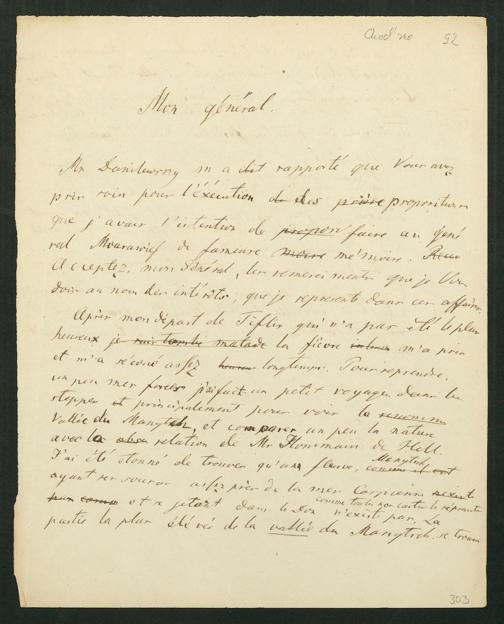 92
Mon général.
Mr m'a dit rapporté que Vous avez
pris soin pour l'éxécution de des prière propositions
que j'avais l'intention de propos faire au géné
ral Mourawief de fameuse mémoire.
Acceptez, mon Général, les remerciments que je Vous
dois au nom des intérêts, que je represente dans cet affaire.
Après mon départ de Tiflis qui n'a pas été le plus
heureux je suis tombé malade la fièvre m'a pris
et m'a sécoué assez longtemps. Pour reprendre
un peu mes forces j'ai fait un petit voyage dans les
steppes et principalement pour voir la
Vallée du Manytch, et comparer un peu la nature
avec la relation de Mr Hommaire de Hell.
J'ai été étonné de trouver qu'un fleuve, Manytch
ayant ses sources assez près de la mer Caspienne
comme toutes nos cartes le représente
et se jetant dans le Don n'existe pas. La
partie la plus élévée de la vallée du Manytch se trouve
303